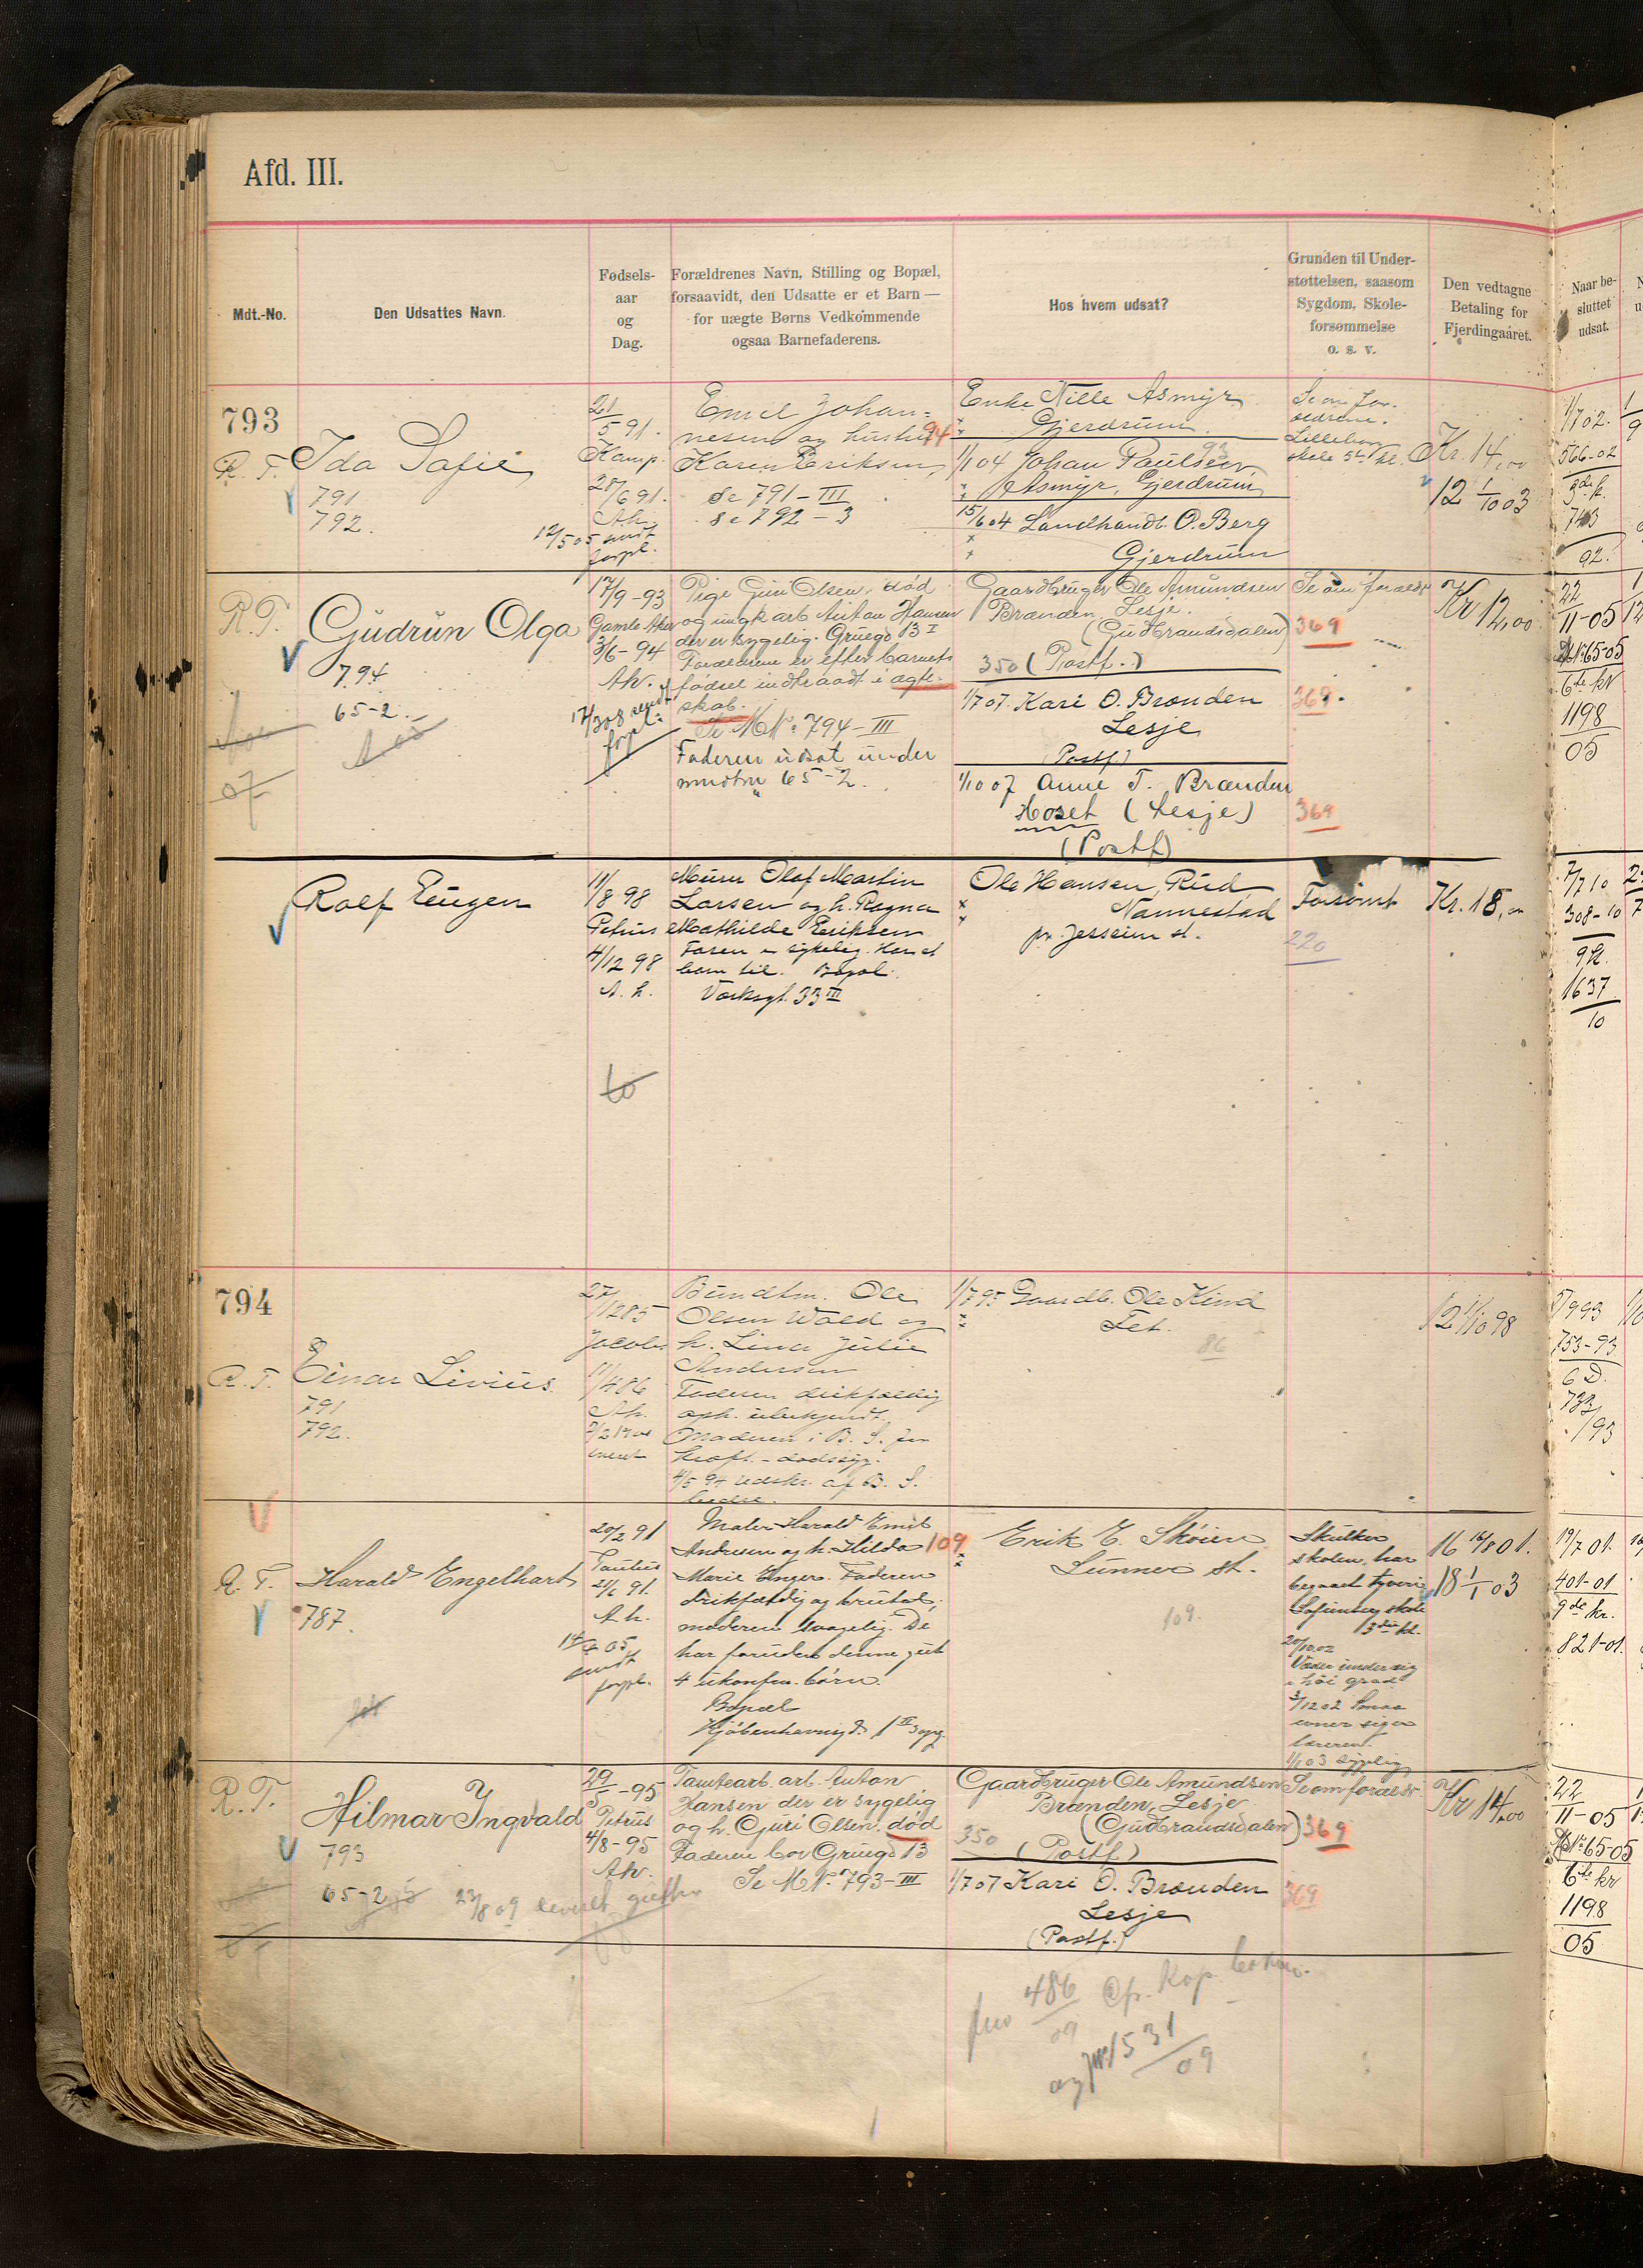 Afd. III.
Mdt.-No.
Den Udsattes Navn.
Fødsels-
aar
og
Dag.
Forældrenes Navn, Stilling og Bopæl,
forsaavidt, den Udsatte er et Barn —
for uægte Børns Vedkommende
ogsaa Barnefaderens.
Hos hvem udsat?
Grunden til Under-
støttelsen, saasom
Sygdom, Skole-
forsømmelse
o. s. v.
Den vedtagne
Betaling for
Fjerdingaaret.
Naar be-
sluttet
udsat.
793
R. T.
Ida Safie
791
792.
21/5 91.
Kamp.
28/6 91.
A.h.
12/5 05 sendt
forpl.
Emil Johan-
nesen og hustru
94
Karen Eriksen
Se 791 - III
Se 792 - 3
Enke Nille Asmyr
Gjerdrum
1/1 04 Johan Paulsen
93
Asmyr, Gjerdrum
15/6 04 Landhandl. O. Berg
Gjerdrum
Se om for-
ældrene.
Lilleborg
skole 5te kl.
Kr. 14,00
12 1/10 03
1/7 02.
566-02
743
92.
R.T.
Gudrun Olga
794
65-2.
17/9-93
Gamle Aker
3/6-94
Ah.
17/3 08 sendt
forpl:
Pige Guri Olsen, død
og ungk arb Anton Hansen
der er sygelig. Grüegd 13 I
Forældrene er efter barnets
fødsel indtraadt i ægte-
skab.
Se M No: 794-III
Faderen udsat under
mndtn 65-2.
Gaardbruger Ole Amundsen
Brænden, Lesje.
(Gudbrandsdalen)
350 (Postf.)
1/7 07. Kari O. Brænden
Lesje
(Postf.)
1/10 07 Anne T. Brænden
Hoset (Lesje)
(Postf)
Se om forældr
369
369.
369
Kr 12,00
22
11-05
No: 65-05
6te kr
1198
05
Rolf Eugen
11/8 98
Petrus
4/12 98
A. h.
Murer Olaf Martin
Larsen og h. Ragna
Mathilde Eriksen
Faren er sykelig. Har et
barn til. Bopæl.
Varksgt. 33 III
Ole Hansen, Rud
Nannestad
pr. Jesseim st.
Forsømt
220
Kr. 18,00
7/7 10
308-10
9kl.
1637
10
794
R. T.
Einar Livius.
791
792.
27/12 85
Jacobs
11/4 86
Ah.
Bundtm. Ole
Olsen Wold og
h. Lina Julie
Andersen
Faderen drikfældig
oph. ubekjendt.
Moderen i B. S. for
4/5 94 udskr. af B. S.
bedre.
1/7 95 Gaardb. Ole Kind
Fet.
86
12 1/10 98
5/9 93
753-93
6 D.
783/93
R. T.
Harald Engelhart
787.
20/2 91
Paulus
21/6 91.
A h.
05
sendt
forpl.
Maler Harald Emil
Andresen og h. Hilda
109
Marie Unger. Faderen
drikfældig og brutal,
moderen svagelig. De
har foruden denne gut
4 ukonfm. børn.
Bopæl
Kjøbenhavngd. 1 II opg.
Erik E. Skøien
Lunner st.
109.
Skulker
skolen, har
begaaet tyveri
Sofienberg skole
3die kl.
20/10 02
Væder under sig
i høi grad
3/12 02 Smaa
evner siger
læreren.
1/1 03 sygelig
16 16/8 01.
18 1/1 03
19/7 01.
401-01
9de kr.
821-01.
R.T.
Hilmar Ingvald
793
65-2
29/5-95
Petrus
4/8-95
Ah.
23/8 09 leveret
Tomtearb. arb. Anton
Hansen der er sygelig
og h. Guri Olsen. død
Faderen bor Grüegd 13
Se M No. 793-III
Gaardbruger Ole Amundsen
Brænden, Lesje
(Gudbrandsdalen)
350 (Postf)
1/7 07 Kari O. Brænden
Lesje
(Postf.)
Se om forældr
369
369
Kr 14,00
22
11-05
No: 65-05
6te kr
1198
05
486/09
Kop.
og jnr 1531/09